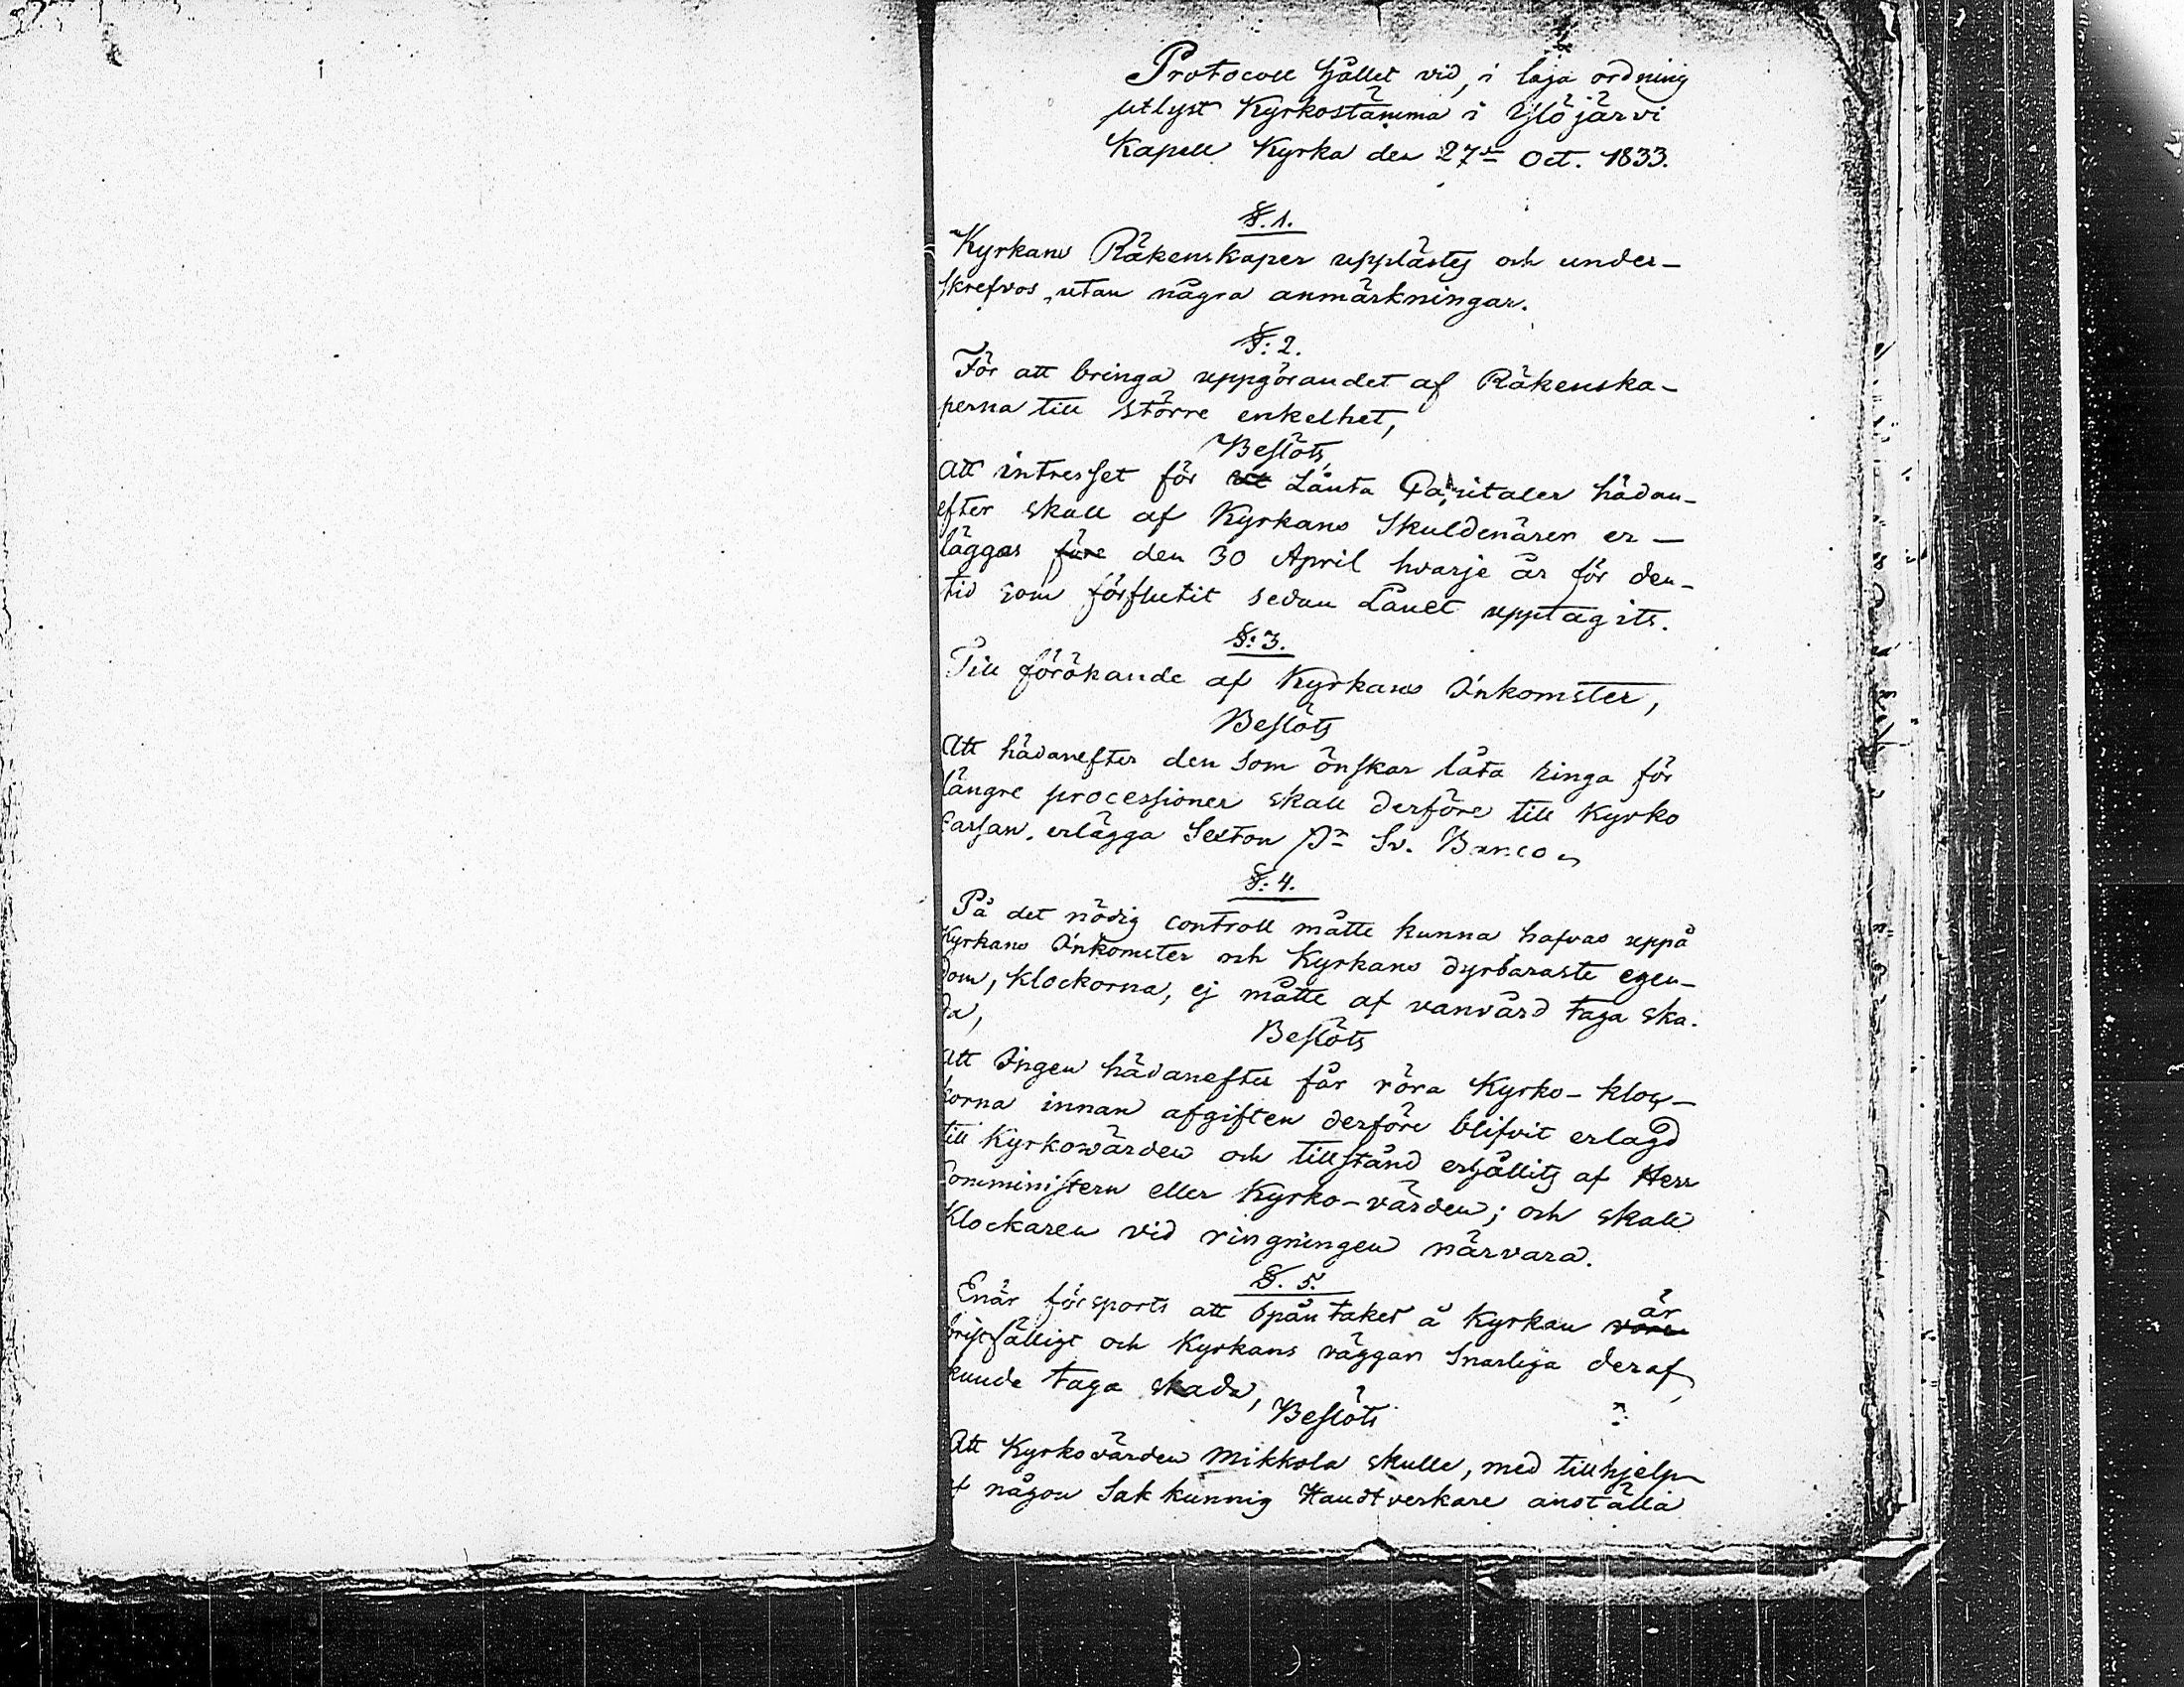 Protocoll hållet vid, i laga ordning
utlyst Kyrkostämma i Ylöjärvi
Kapell Kyrka den 27de Oct. 1833.
§. 1.
Kyrkans Räkenskaper upplästes och under-
skrefvos, utan några anmärkningar.
§: 2.
För att bringa uppgörandet af Räkenska-
perna till större enkelhet,
Beslöts,
Att intresset för Lånta Capitaler hädan-
efter skall af Kyrkans Skuldenärer er-
läggas före den 30 April hvarje år för den-
tid som förflutit sedan Lånet upptagits.
§: 3.
Till förökande af Kyrkans Inkomster,
Beslöts
Att hädanefter den som önskar låta ringa för
längre processioner skall derföre till Kyrko
Cassan erlägga Sexton Sv. Banco
§: 4.
På det nödig controll måtte kunna hafvas uppå
Kyrkans Inkomster och Kyrkans dyrbaraste egen-
dom, klockorna, ej måtte af vanvård taga ska-
da,
Beslöts
Att Ingen hädanefter får röra Kyrko-kloc-
korna innan afgiften derföre blifvit erlagd
till Kyrkovärden och tillstånd erhållits af Herr
Comministern eller Kyrko-värden; och skall
Klockaren vid ringningen närvara.
§. 5.
Enär försports att Spån taket å Kyrkan vore är
bristfälligt och Kyrkans väggar snarliga deraf
kunde taga skada,
Beslöts
Att Kyrkovärden Mikkola skulle, med tillhjelp
af någon Sak kunnig Handtverkare anställa